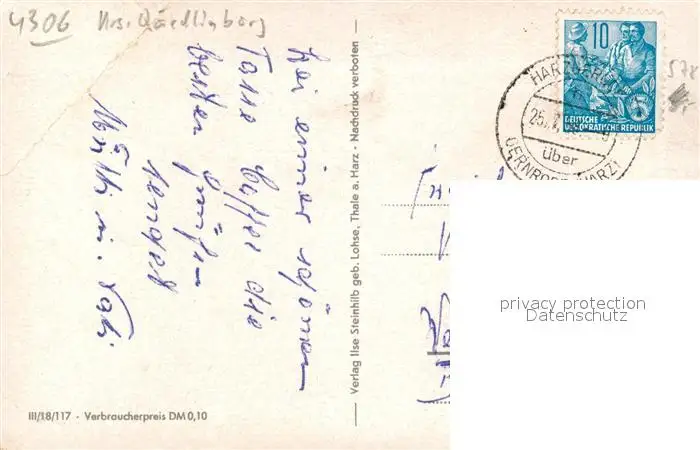 4306 Krs. Quedlinburg
bei einer schönen
Tasse Kaffee die
besten Grüße
sendet
Verlag Ilse Steinhilb geb. Lohse, Thale a. Harz · Nachdruck verboten
III/18/117 · Verbraucherpreis DM 0,10
10
DEUTSCHE
DEMOKRATISCHE REPUBLIK
5
HARZGERODE
25.
über
GERNRODE (HARZ)
578
privacy protection
Datenschutz